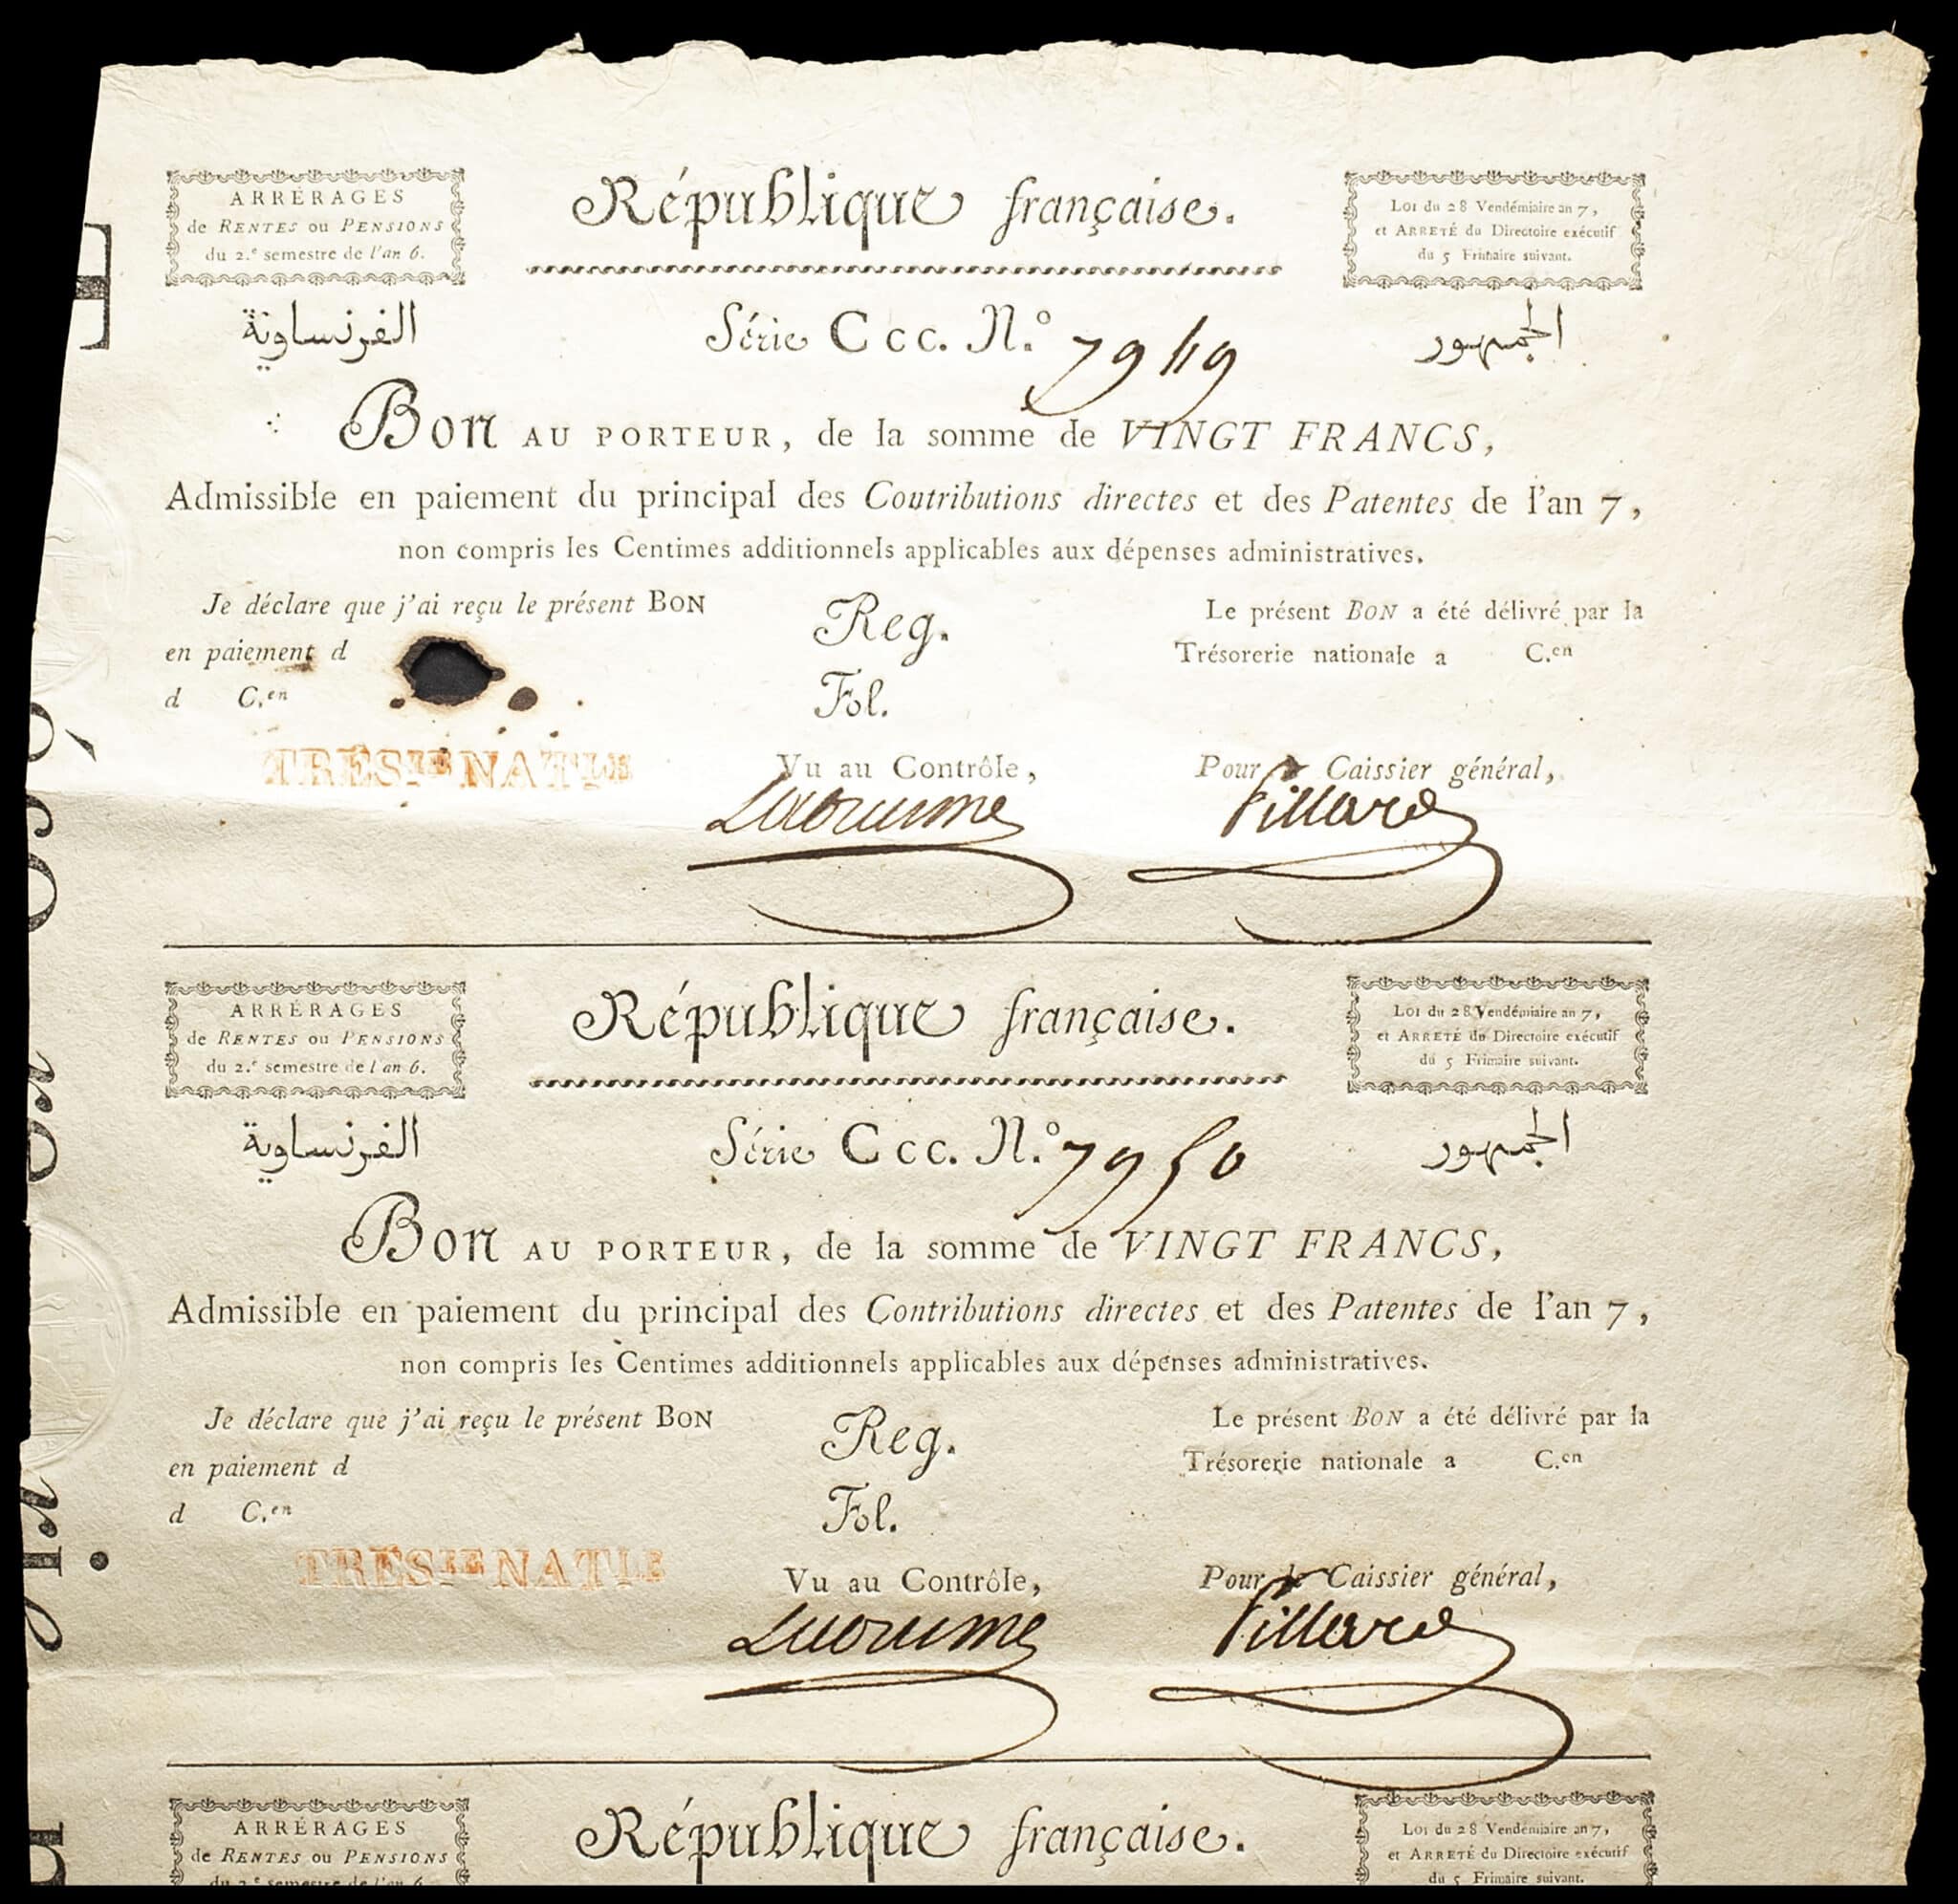 ARRÉRAGES
de RENTES ou PENSIONS
du 2.e semestre de l'an 6.
République française.
Loi du 28 Vendémiaire an 7,
et ARRETÉ du Directoire exécutif
du 5 Frimaire suivant.
الفرنساوية
Série C cc. N.o 7949
الجمهور
Bon AU PORTEUR, de la somme de VINGT FRANCS,
Admissible en paiement du principal des Contributions directes et des Patentes de l'an 7,
non compris les Centimes additionnels applicables aux dépenses administratives.
Je déclare que j'ai reçu le présent BON
en paiement d
d C.en
Reg.
Fol.
Le présent BON a été délivré par la
Trésorerie nationale a C.en
TRÉSIE NATLE
Vu au Contrôle,
Pour le Caissier général,
Villard
ARRÉRAGES
de RENTES ou PENSIONS
du 2.e semestre de l'an 6.
République française.
Loi du 28 Vendémiaire an 7,
et ARRETÉ du Directoire exécutif
du 5 Frimaire suivant.
الفرنساوية
Série C cc. N.o 7950
الجمهور
Bon AU PORTEUR, de la somme de VINGT FRANCS,
Admissible en paiement du principal des Contributions directes et des Patentes de l'an 7,
non compris les Centimes additionnels applicables aux dépenses administratives.
Je déclare que j'ai reçu le présent BON
en paiement d
d C.en
Reg.
Fol.
Le présent BON a été délivré par la
Trésorerie nationale a C.en
TRÉSIE NATLE
Vu au Contrôle,
Pour le Caissier général,
Villard
ARRÉRAGES
de RENTES ou PENSIONS
du 2.e semestre de l'an 6.
République française.
Loi du 28 Vendémiaire an 7,
et ARRETÉ du Directoire exécutif
du 5 Frimaire suivant.